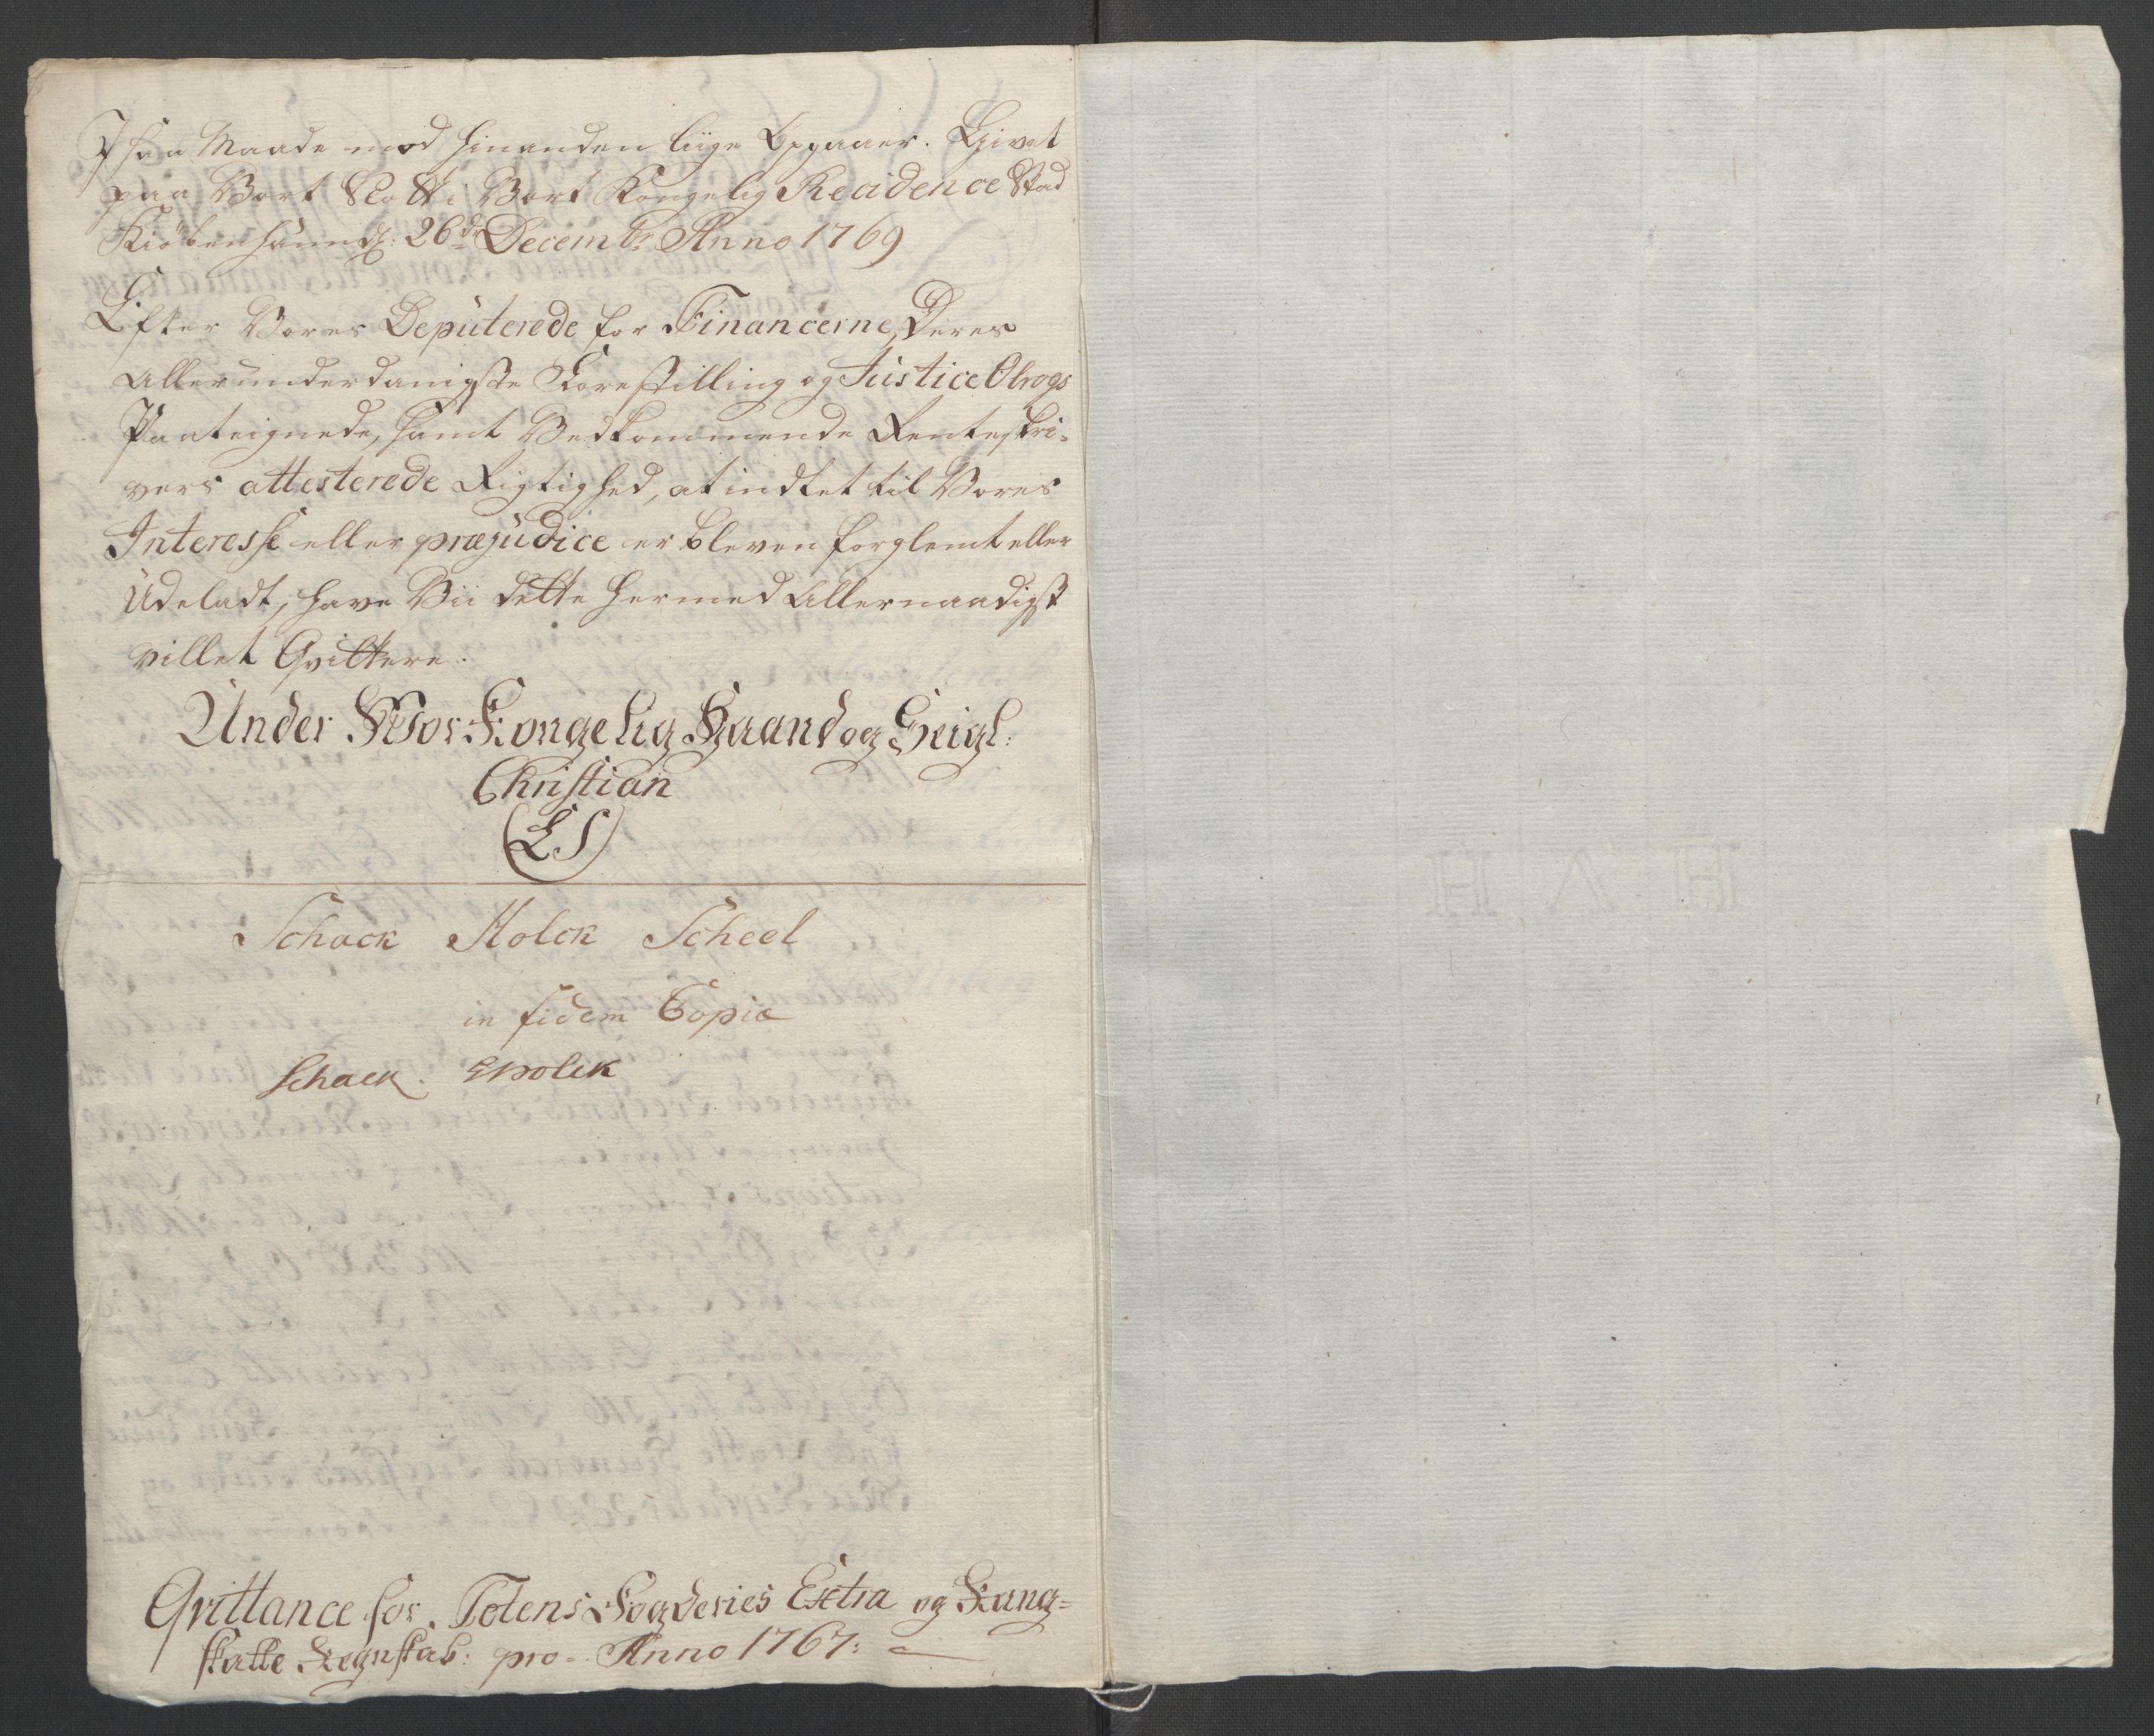 I saa Maade mod hinanden liige Opgaaer. Givet
paa Vort Slott i Vort Kongelig Recidence Stad
Kiöbenhaun d: 26de Decembr Anno 1769
Efter Vores Deputerede for Financerne, Deres
allerunderdanigste Forestilling og Justice Olrogs
Paateignede, samt Vedkommende Renteskri-
vers attesterede Rigtighed, at indtet til Vores
Interesse eller præjudice er bleven forglemt eller
Udeladt, have Vii dette hermed Allernaadigst
villet Qvittere.
Under Vor Kongelig Haand og Seigl:
Christian
(LS)
Schack Holck Scheel
in fidem Copiæ
Schack. Holck
Qvittance for Totens Fogderies Extra og Rang-
skatte Regnskab: pro Anno 1767:
HVH